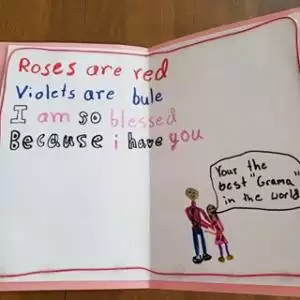 Roses are red
Violets are bule
I am so blessed
Because i have you
Your the
best "Grama"
in the world